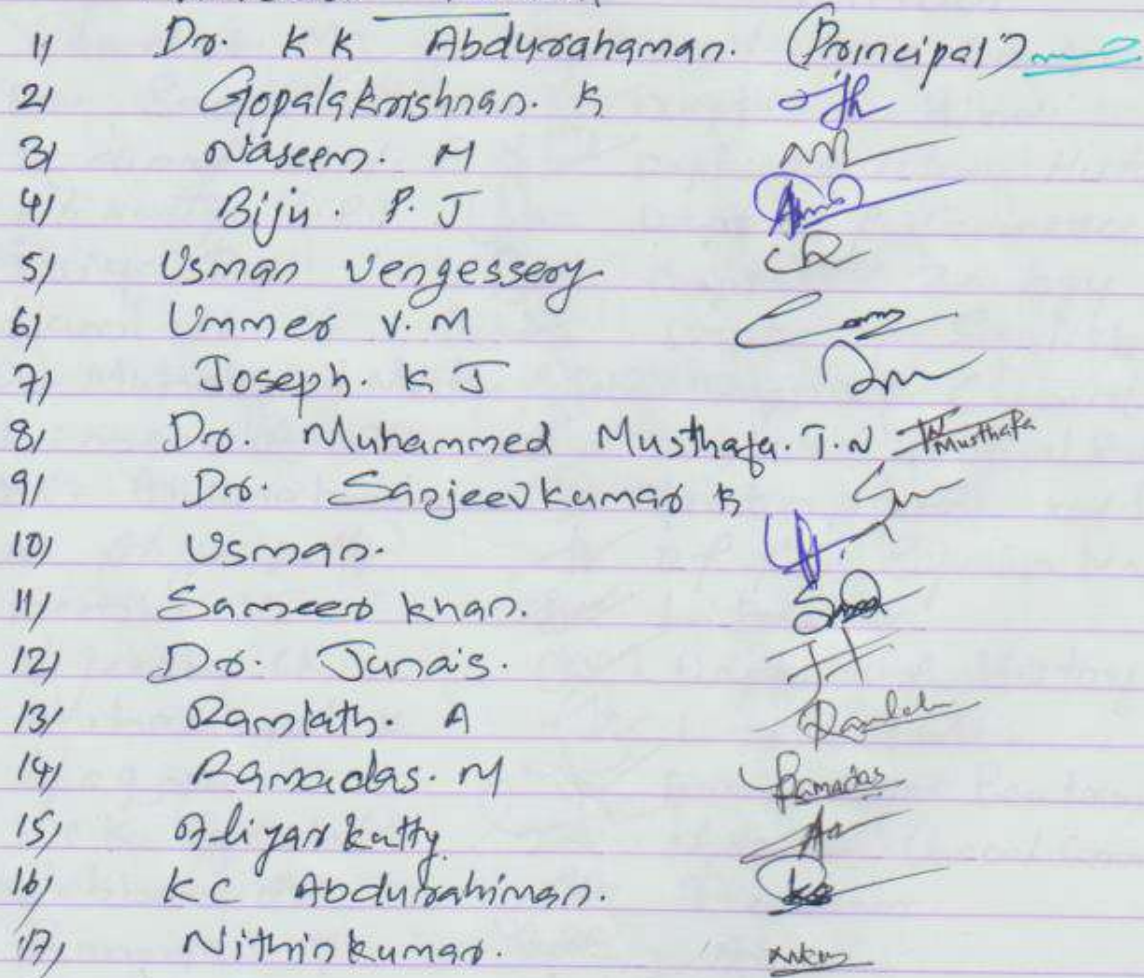 1) Dr. K K Abdurahaman. (Principal)
2) Gopalakrishnan. K
3) Naseem. M
4) Biju. P. J
5) Usman Vengessery
6) Ummer V. M
7) Joseph. K J
8) Dr. Muhammed Musthafa. T. N Musthafa
9) Dr. Sanjeevkumar K
10) Usman.
11) Sameer khan.
12) Dr. Junais.
13) Ramlath. A
14) Ramadas. M Ramadas
15) Aliyarkutty
16) KC Abdurahiman.
17) Nithinkumar.